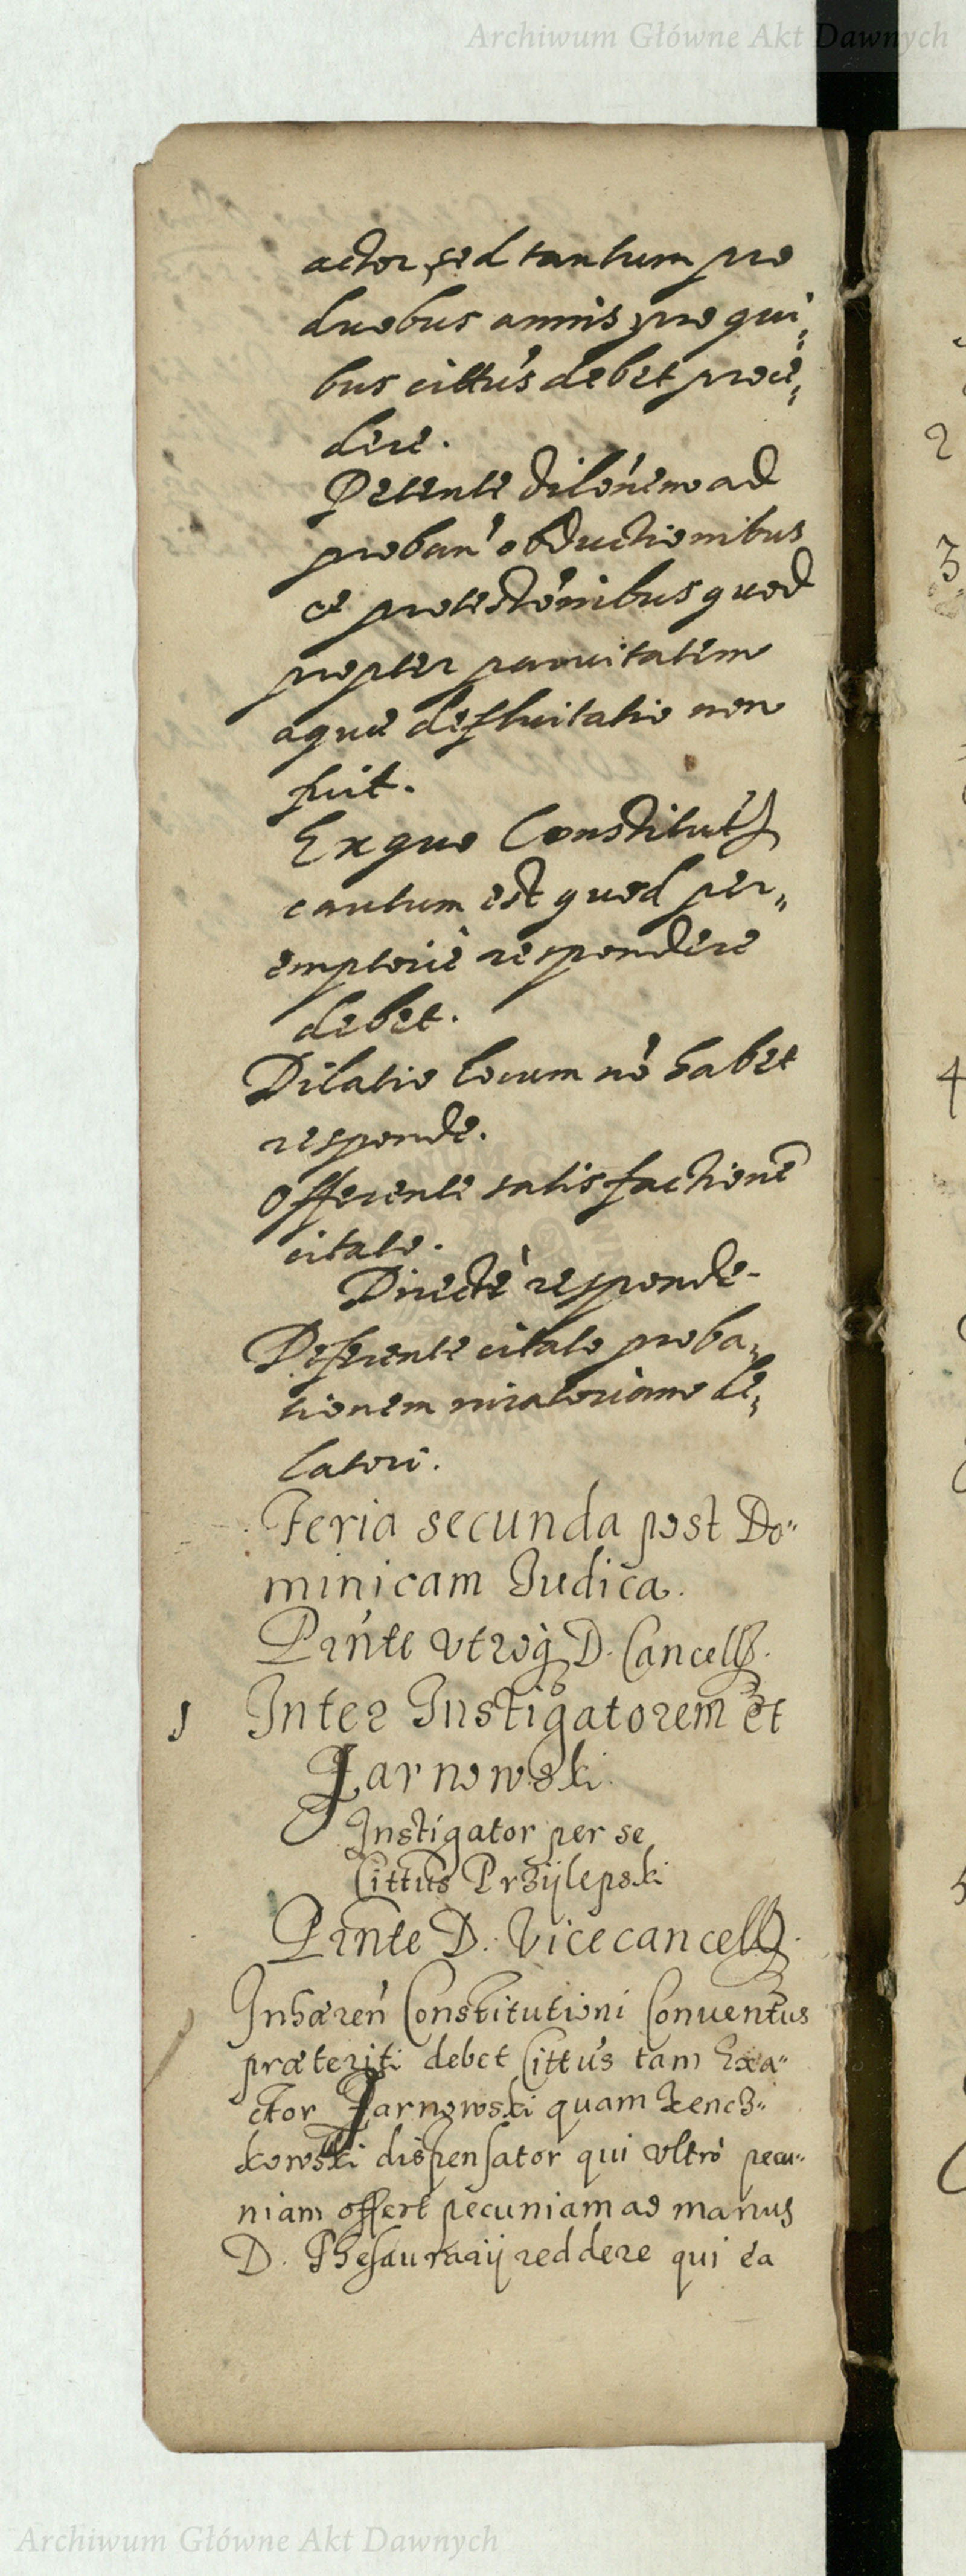 Archiwum Główne Akt Dawnych
actor, sed tantum pro
duobus annis pro qui„
bus citt'us debet proce„
dere.
Petente dilo'nem ad
proban' obductionibus
ce protesto'nibus quod
propter paruitatem
aquæ defluitatio non
fuit.
Ex quo Constitut'
cautum est quod per„
emptoriè respondere
debet.
Dilatio locum no' habet
responde.
Offerente satisfactione
citato.
Directè responde-
Deferente citato proba„
tionem iuratoriam de„
latori.
Feria secunda post Do„
minicam Iudica.
Prn'te vtroq; D. Cancell.
1 Inter Instigatorem et
Jarnowski.
Instigator per se
Cittus Przÿlepski
Prnte D. Vicecancell.
Inhæren' Constitutioni Conuentus
præteriti debet Citt'us tam Exa„
ctor Jarnowski quam
kowski dispensator qui vltrò pecu„
niam offert pecuniam ad manus
D. Thesaurarij reddere qui ea
2
3
4
Archiwum Główne Akt Dawnych